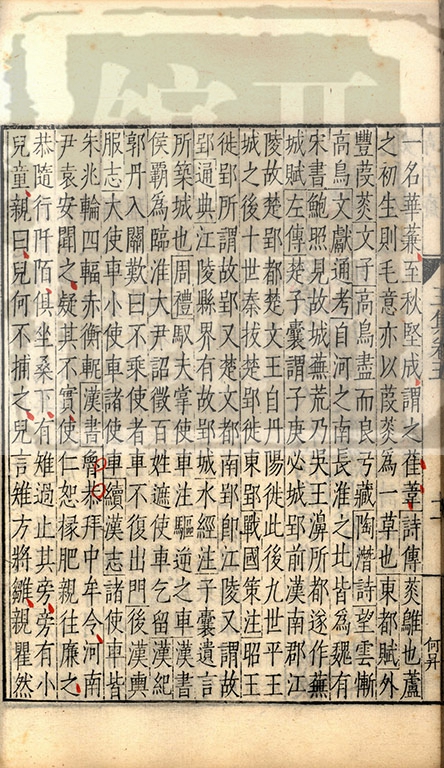 一名華蒹至秋堅成謂之萑葦詩傳菼鵻也蘆
之初生則毛意亦以葭菼為一草也東都賦外
豐葭菼文子高鳥盡而良弓藏陶潛詩望雲慚
高鳥文獻通考自河之南長淮之北皆為魏有
宋書鮑照見故城蕪荒乃吳王濞所都遂作蕪
城賦左傳楚子囊謂子庚必城郢前漢南郡江
陵故楚郢都楚文王自丹陽徙此後九世平王
城之後十世秦拔楚郢徙東郢戰國策注昭王
徙郢所謂故郢又楚文都南郢即江陵又謂故
郢通典江陵縣界有故郢城水經注子囊遺言
所築城也周禮馭夫掌使車注驅逆之車漢書
侯霸為臨淮大尹詔徵百姓遮使車乞留漢紀
郭丹入關歎曰不乘使者車不復出門後漢輿
服志大使車小使車諸使車續漢志諸使車皆
朱兆輪四輻赤衡軛漢書魯恭拜中牟令河南
尹袁安聞之疑其不實使仁恕掾肥親往廉之
恭隨行阡陌俱坐桑下有雉過止其旁旁有小
兒童親曰兒何不捕之兒言雉方將雛親瞿然
何昇